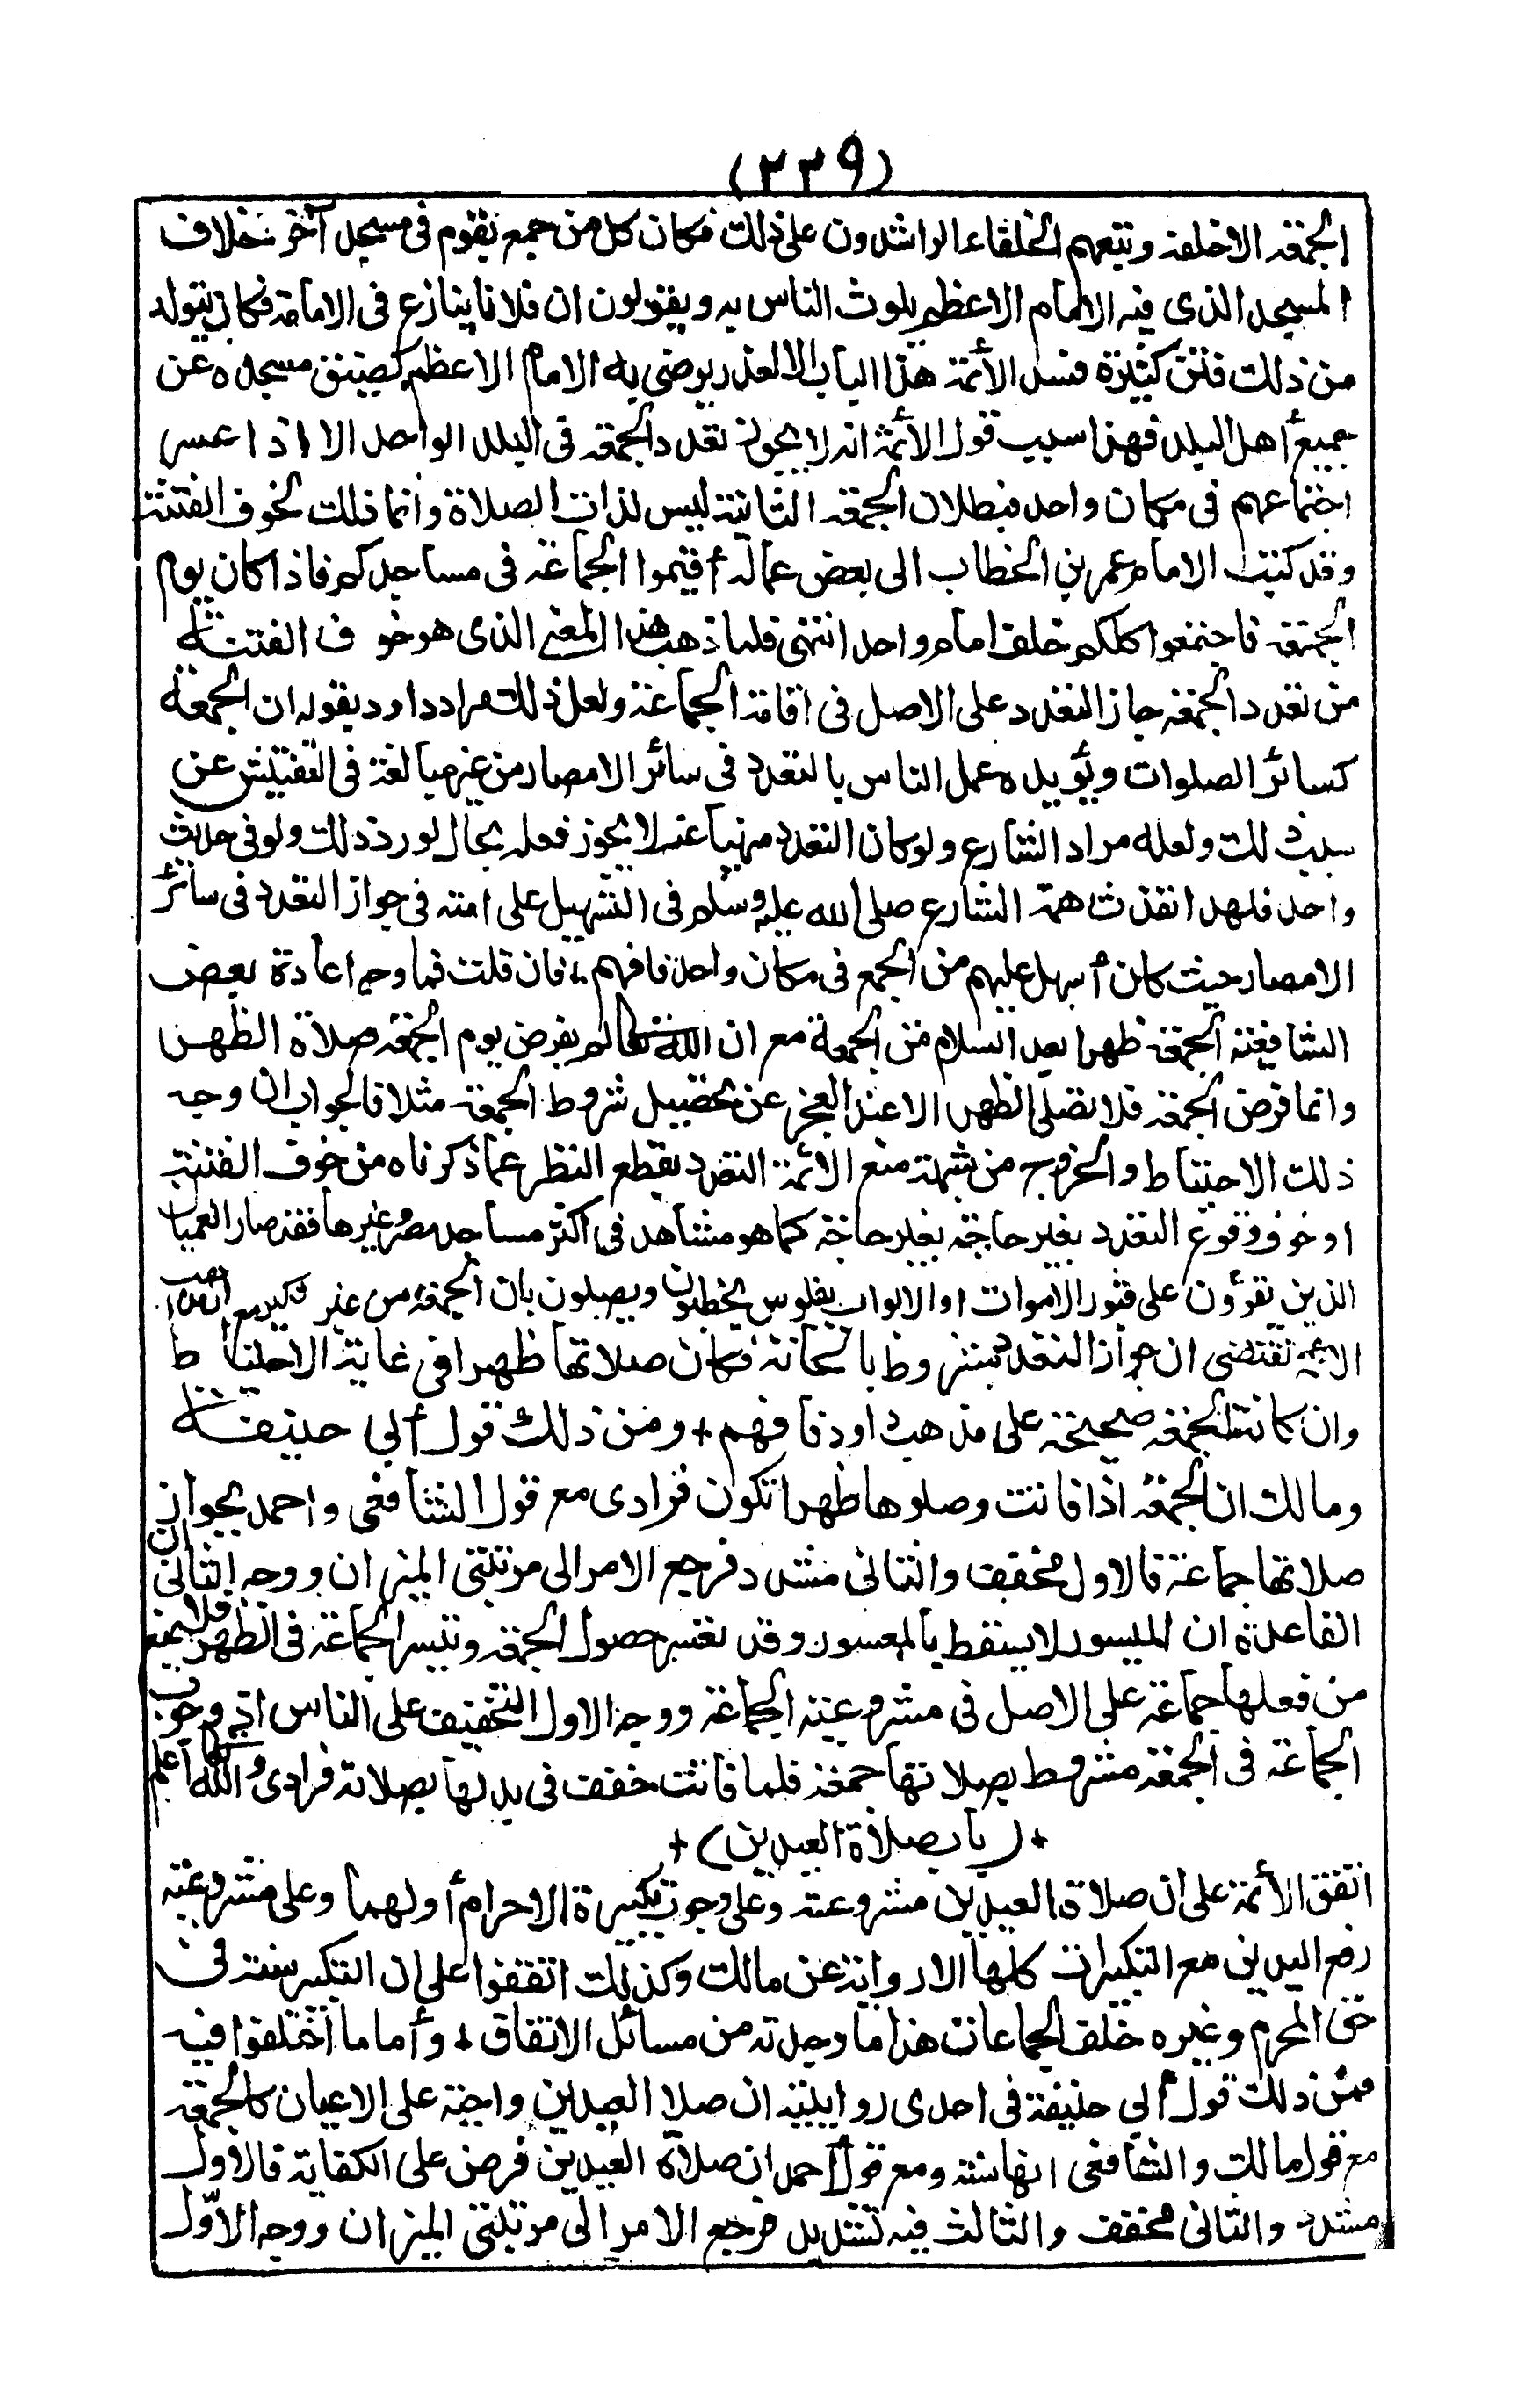 (٢٣٩)
الجمعة الا خلفه وتبعهم الخلفاء الراشدون على ذلك فكان كل من جمع بقوم فى مسجد آخر خلاف
المسجد الذى فيه الامام الاعظم يلوث الناس به ويقولون ان فلانا ينازع فى الامامة فكان يتولد
من ذلك فتن كثيرة فسد الأئمة هذا الباب الا لعذر يرضى به الامام الاعظم كضيق مسجده عن
جميع أهل البلد فهذا سبب قول الأئمة انه لا يجوز تعدد الجمعة فى البلد الواحد الا اذا عسر
اجتماعهم فى مكان واحد فبطلان الجمعة الثانية ليس لذات الصلاة وانما ذلك لخوف الفتنة
وقد كتب الامام عمر بن الخطاب الى بعض عماله أقيموا الجماعة فى مساجدكم فاذا كان يوم
الجمعة فاجتمعوا كلكم خلف امام واحد انتهى فلما ذهب هذا المعنى الذى هو خوف الفتنة
من تعدد الجمعة جاز التعدد على الاصل فى اقامة الجماعة ولعل ذلك مراد داود بقوله ان الجمعة
كسائر الصلوات ويؤيده عمل الناس بالتعدد فى سائر الامصار من غير مبالغة فى التفتيش عن
سبب ذلك ولعله مراد الشارع ولو كان التعدد منهيا عنه لا يجوز فعله بحال لورد ذلك ولو فى حديث
واحد فلهذا نفذت همة الشارع صلى الله عليه وسلم فى التسهيل على امته فى جواز التعدد فى سائر
الامصار حيث كان أسهل عليهم من الجمع فى مكان واحد فافهم ،، فان قلت فما وجه اعادة بعض
الشافعية الجمعة ظهرا بعد السلام من الجمعة مع ان الله تعالى لم يفرض يوم الجمعة صلاة الظهر
وانما فرض الجمعة فلا تصلى الظهر الا عند العجز عن تحصيل شروط الجمعة مثلا فالجواب ان وجه
ذلك الاحتياط والخروج من شبهة منع الائمة التعدد بقطع النظر عما ذكرناه من خوف الفتنة
او خوف وقوع التعدد بغير حاجة بغير حاجة كما هو مشاهد فى اكثر مساجد مصر وغيرها فقد صار العميان
الذين يقرؤن على قبور الاموات او الابواب بفلوس يخطبون ويصلون بان الجمعة من غير نكير مع ان مذاهب
الائمة تقتضى ان جواز التعدد مشروط بالحاجة فكان صلاتها ظهرا فى غاية الاحتياط
وان كانت الجمعة صحيحة على مذهب داود فافهم + ومن ذلك قول أبى حنيفة
ومالك ان الجمعة اذا فاتت وصلوها ظهرا تكون فرادى مع قول الشافعى واحمد بجواز
صلاتها جماعة فالاول مخفف والثانى مشدد فرجع الامر الى مرتبتى الميزان ووجه الثانى ان
القاعدة ان الميسور لا يسقط بالمعسور وقد تعسر حصول الجمعة وتيسر الجماعة فى الظهر فلا يمنع
من فعلها جماعة على الاصل فى مشروعية الجماعة ووجه الاول التخفيف على الناس اذ وجوب
الجماعة فى الجمعة مشروط بصلاتها جمعة فلما فاتت خفف فى بدلها بصلاته فرادى والله تعالى أعلم
+ (باب صلاة العيدين) +
اتفق الأئمة على ان صلاة العيدين مشروعة وعلى وجوب تكبيرة الاحرام أولهما وعلى مشروعية
رفع اليدين مع التكبيرات كلها الا رواية عن مالك وكذلك اتفقوا على ان التكبير سنة فى
حق المحرم وغيره خلف الجماعات هذا ما وجدته من مسائل الاتفاق + وأما ما اختلفوا فيه
فمن ذلك قول أبى حنيفة فى احدى روايتيه ان صلاة العيدين واجبة على الاعيان كالجمعة
مع قول مالك والشافعى انها سنة ومع قول أحمد ان صلاة العيدين فرض على الكفاية فالاول
مشدد والثانى مخفف والثالث فيه تشديد فرجع الامر الى مرتبتى الميزان ووجه الاول